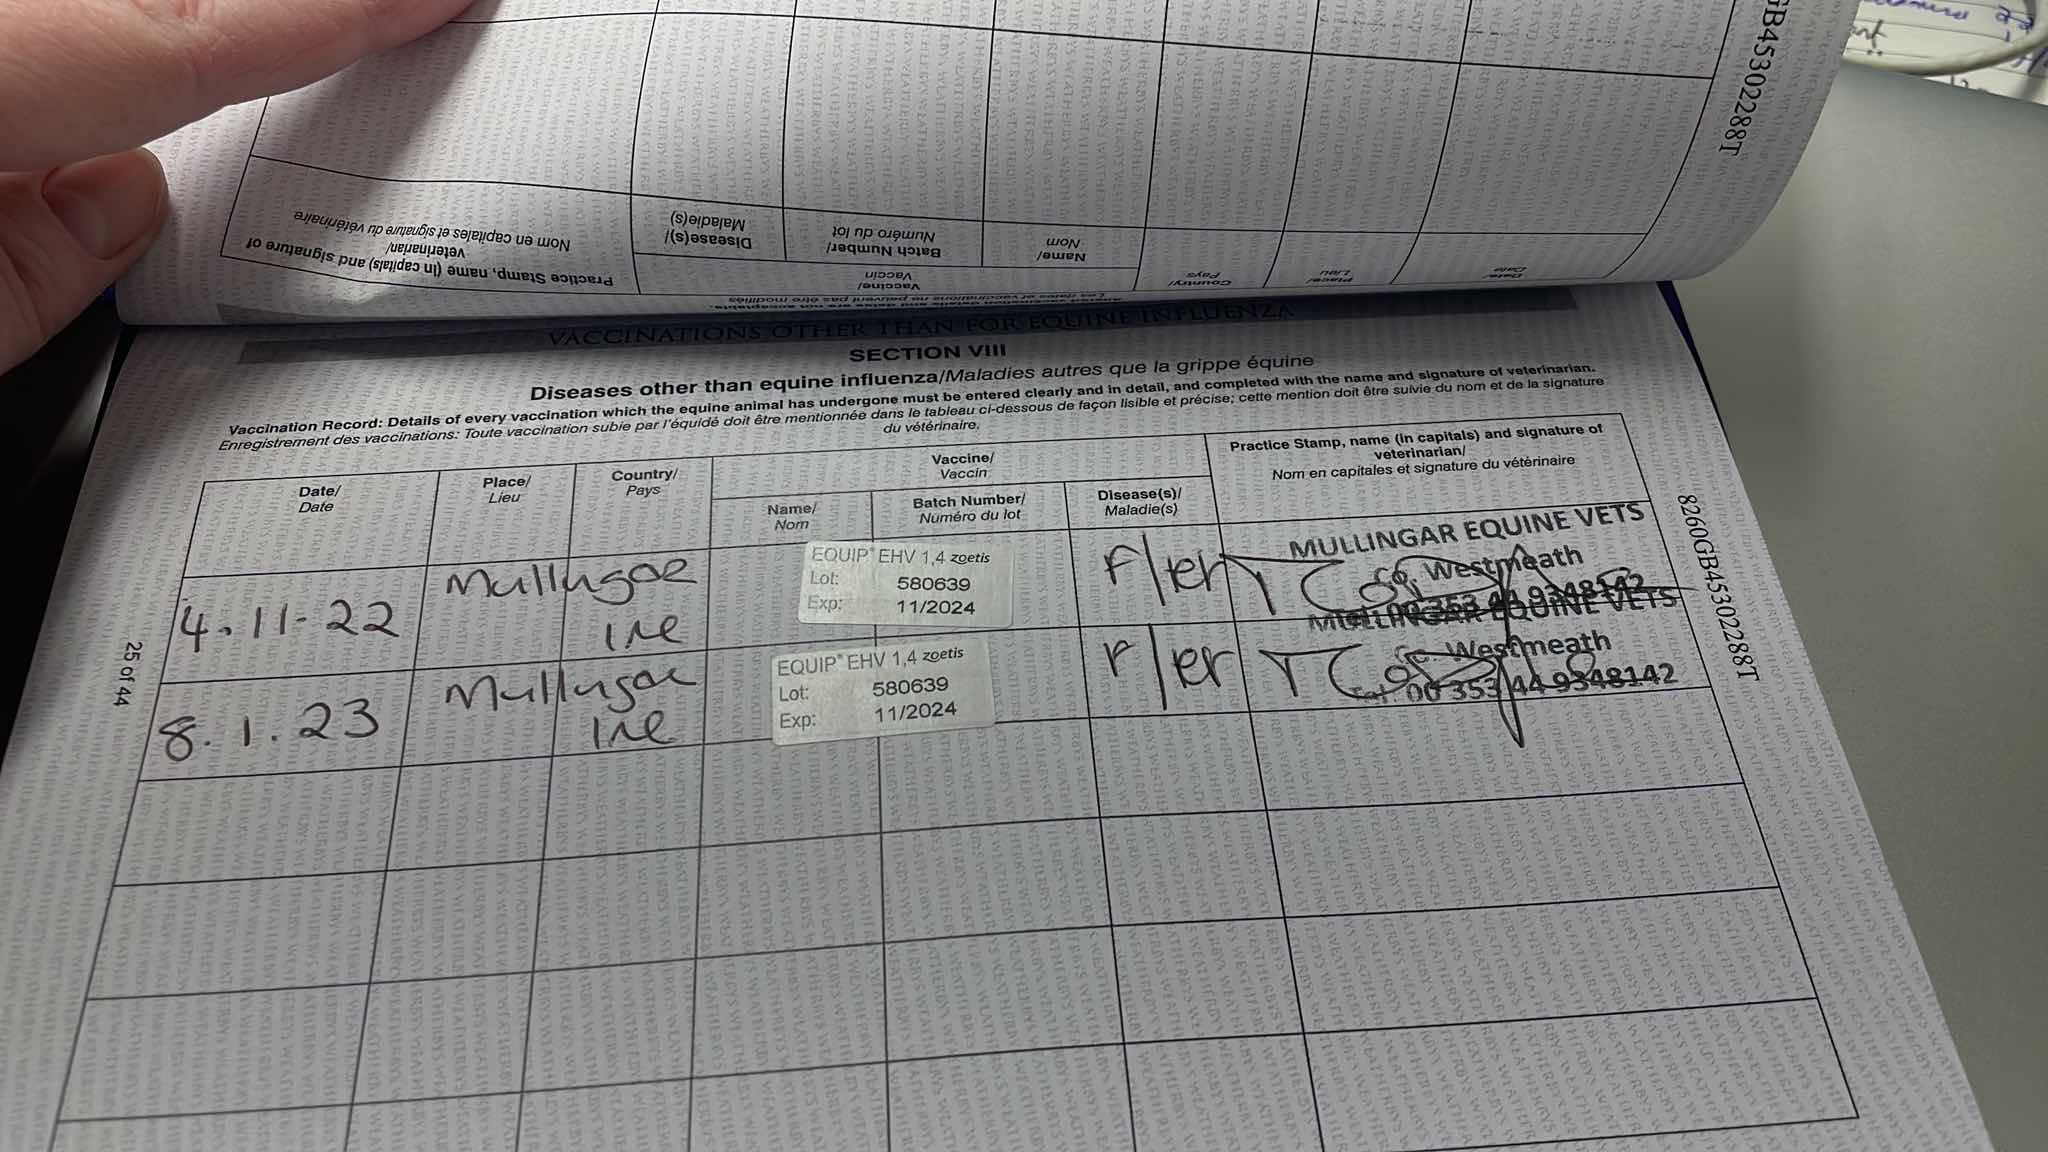 GB45302288T
Practice Stamp, name (in capitals) and signature of
veterinarian/
Nom en capitales et signature du vétérinaire
Vaccine/
Vaccin
Disease(s)/
Maladie(s)
Batch Number/
Numéro du lot
Name/
Nom
Country/
Pays
Place/
Lieu
Date/
Date
Les dates et vaccinations ne peuvent pas être modifiés
VACCINATIONS OTHER THAN FOR EQUINE INFLUENZA
SECTION VIII
Diseases other than equine influenza/Maladies autres que la grippe équine
Vaccination Record: Details of every vaccination which the equine animal has undergone must be entered clearly and in detail, and completed with the name and signature of veterinarian.
Enregistrement des vaccinations: Toute vaccination subie par l'équidé doit être mentionnée dans le tableau ci-dessous de façon lisible et précise; cette mention doit être suivie du nom et de la signature
du vétérinaire.
Date/
Date
Place/
Lieu
Country/
Pays
Vaccine/
Vaccin
Name/
Nom
Batch Number/
Numéro du lot
Disease(s)/
Maladie(s)
Practice Stamp, name (in capitals) and signature of
veterinarian/
Nom en capitales et signature du vétérinaire
4.11-22
Mullingar
Ire
EQUIP® EHV 1,4 zoetis
Lot: 580639
Exp: 11/2024
MULLINGAR EQUINE VETS
Co. Westmeath
00 353 44 9348142
8.1.23
Mullingar
Ire
EQUIP® EHV 1,4 zoetis
Lot: 580639
Exp: 11/2024
MULLINGAR EQUINE VETS
Co. Westmeath
Tel. 00 353 44 9348142
25 of 44
8260GB45302288T